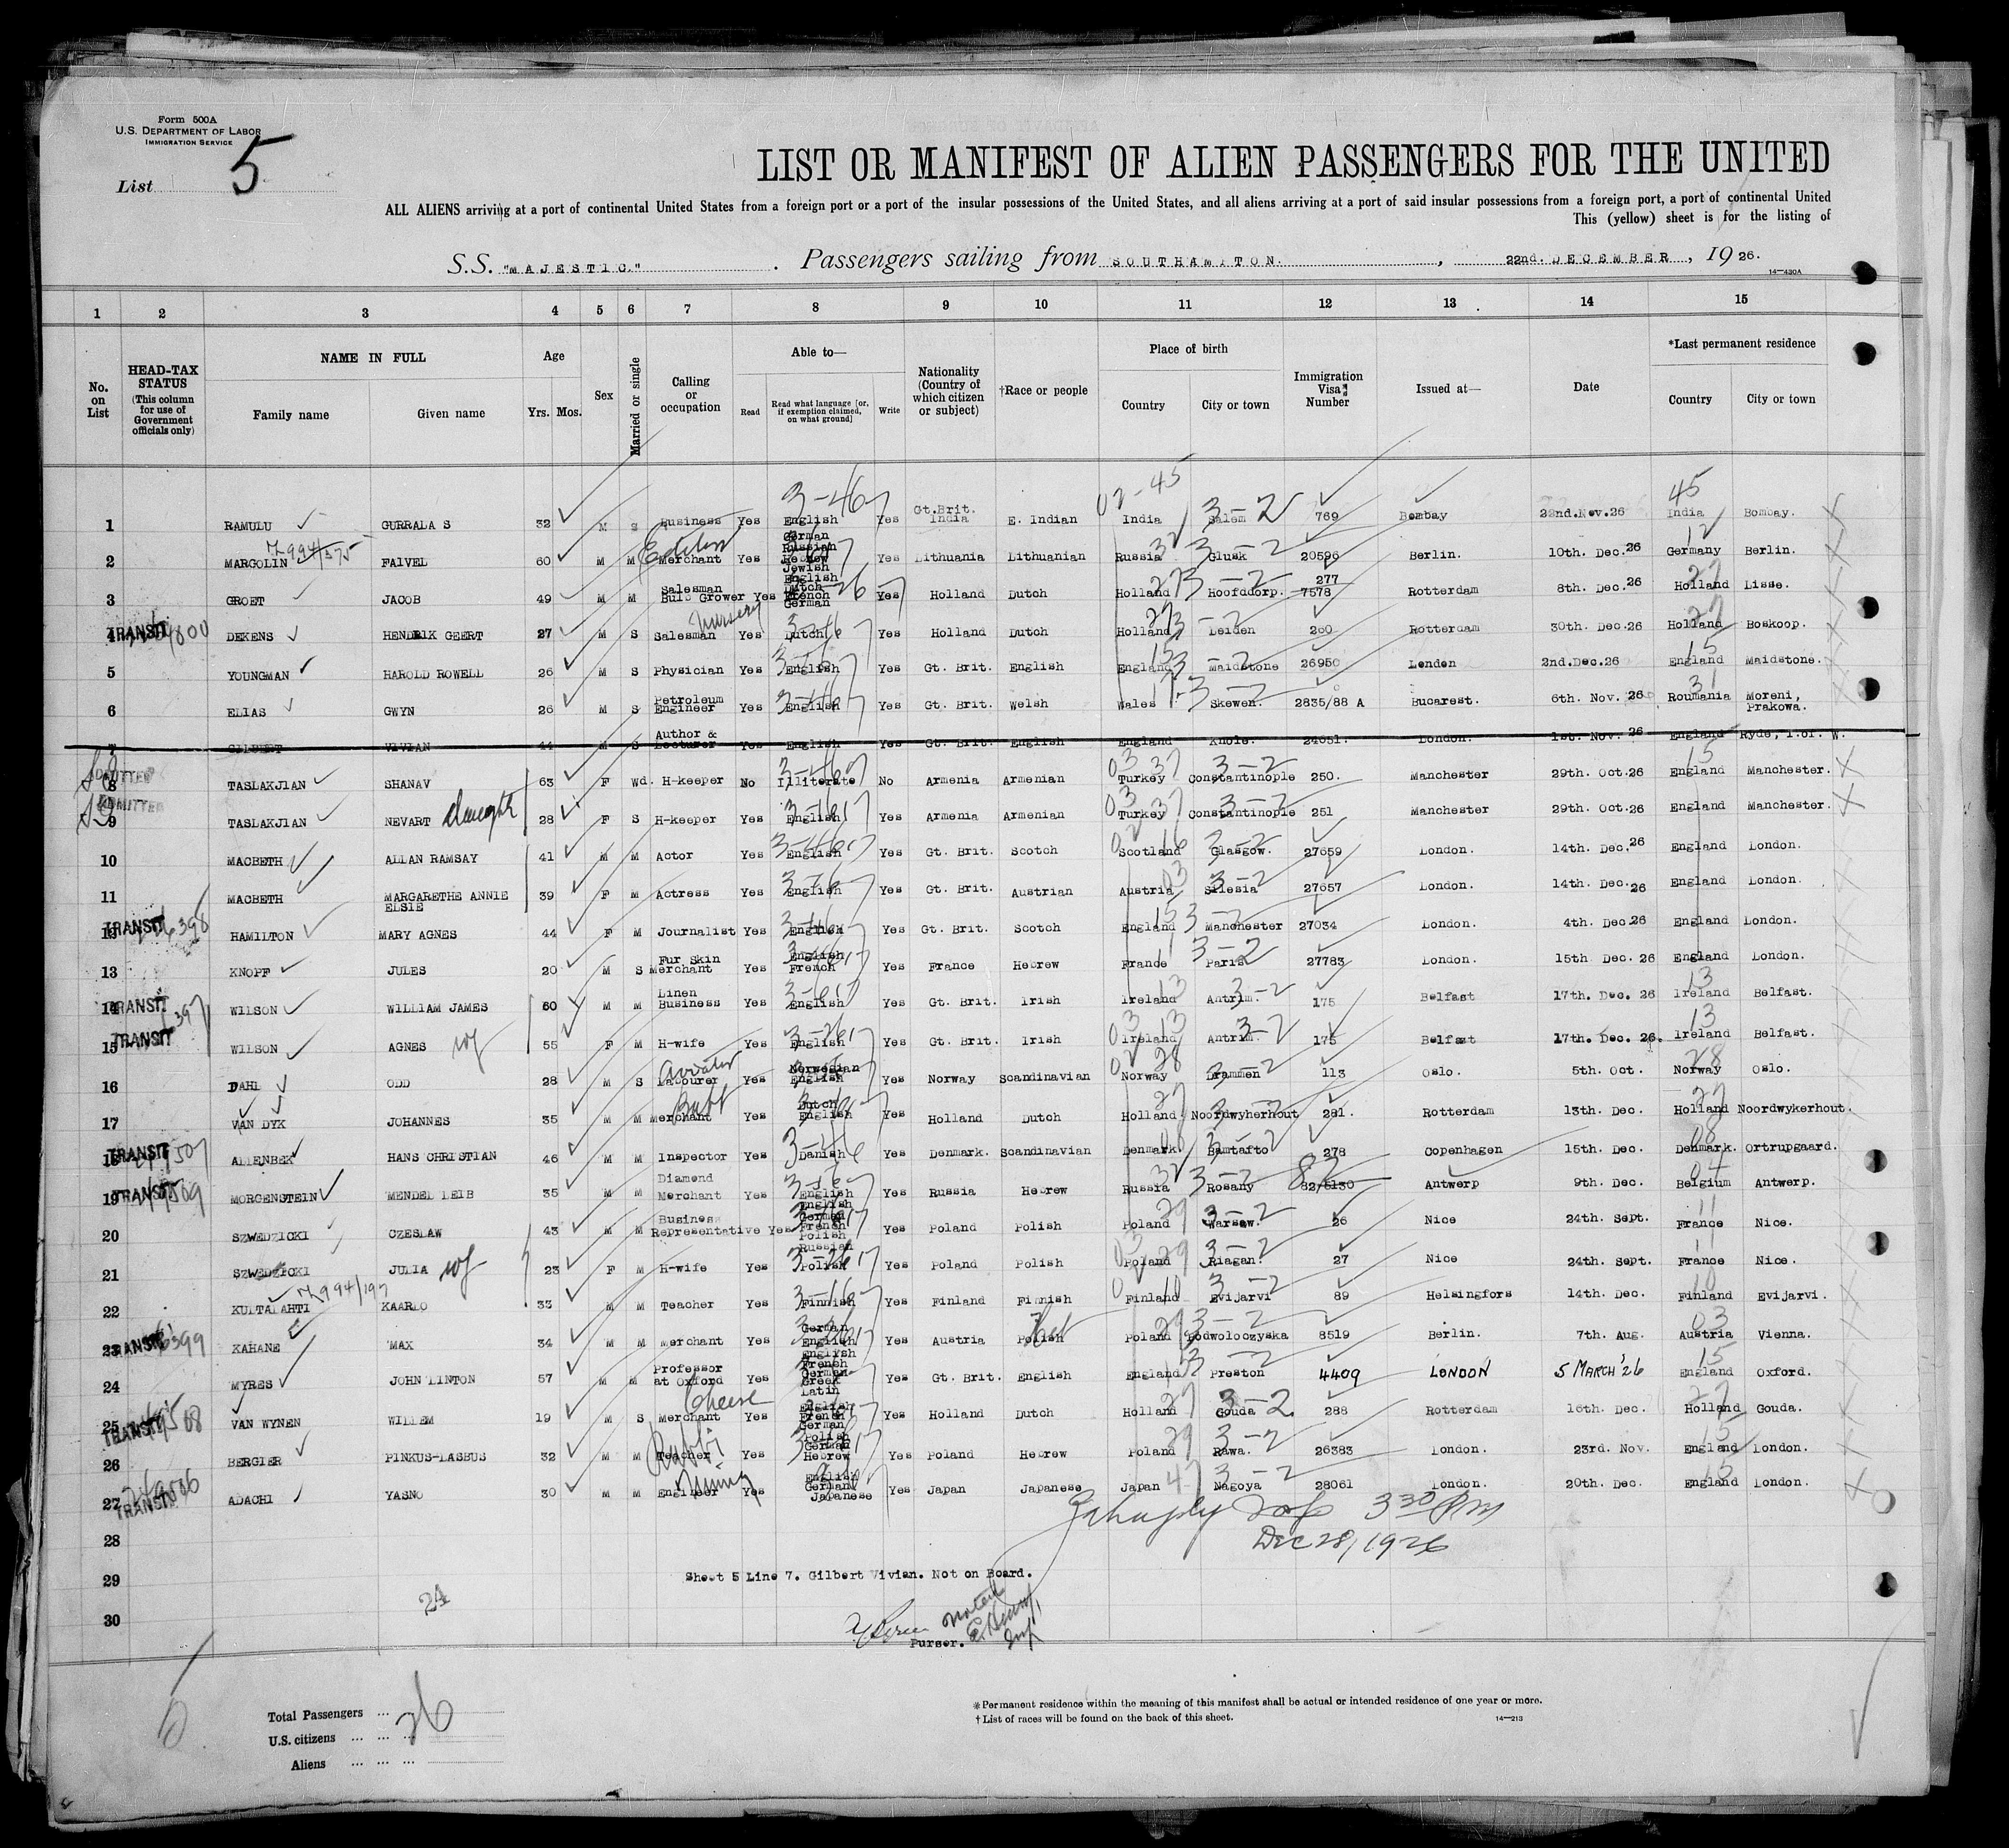 Form 500A
U.S. DEPARTMENT OF LABOR
IMMIGRATION SERVICE
List 5
LIST OR MANIFEST OF ALIEN PASSENGERS FOR THE UNITED
ALL ALIENS arriving at a port of continental United States from a foreign port or a port of the insular possessions of the United States, and all aliens arriving at a port of said insular possessions from a foreign port, a port of continental United
This (yellow) sheet is for the listing of
S.S. "MAJESTIC." Passengers sailing from SOUTHAMPTON. , 22nd. DECEMBER , 19 26.
14—430A
1 2 3 4 5 6 7 8 9 10 11 12 13 14 15
No. on List
HEAD-TAX STATUS (This column for use of Government officials only)
NAME IN FULL Family name Given name
Age Yrs. Mos.
Sex
Married or single
Calling or occupation
Able to— Read Read what language [or, if exemption claimed, on what ground] Write
Nationality (Country of which citizen or subject)
†Race or people
Place of birth Country City or town
Immigration Visa Number
Issued at—
Date
*Last permanent residence Country City or town
1 RAMULU GURRALA S 32 M S Business Yes English Yes Gt.Brit. India E. Indian India Salem 769 Bombay 22nd.Nov.26 India Bombay.
2 MARGOLIN FAIVEL 60 M M Merchant Yes German Russian Hebrew Jewish Yes Lithuania Lithuanian Russia Glusk 20596 Berlin. 10th. Dec. 26 Germany Berlin.
3 GROET JACOB 49 M M Salesman Bulb Grower Yes English Dutch French German Yes Holland Dutch Holland Hoofddorp. 277 7578 Rotterdam 8th. Dec. 26 Holland Lisse.
4 TRANSIT DEKENS HENDRIK GEERT 27 M S Nursery Salesman Yes Dutch Yes Holland Dutch Holland Leiden 260 Rotterdam 30th. Dec.26 Holland Boskoop.
5 YOUNGMAN HAROLD ROWELL 26 M S Physician Yes English Yes Gt. Brit. English England Maidstone 26950 London 2nd.Dec.26 England Maidstone.
6 ELIAS GWYN 26 M S Petroleum Engineer Yes English Yes Gt. Brit. Welsh Wales Skewen. 2835/88 A Bucarest. 6th. Nov. 26 Roumania Moreni, Prakowa.
7 GILBERT VIVIAN 44 M S Author & Lecturer Yes English Yes Gt. Brit. English England Knole. 24051. London. 1st. Nov. 26 England Ryde, I.of. W.
8 ADMITTED TASLAKJIAN SHANAV 63 F Wd. H-keeper No Illiterate No Armenia Armenian Turkey Constantinople 250. Manchester 29th. Oct.26 England Manchester.
9 ADMITTED TASLAKJIAN NEVART daught 28 F S H-keeper Yes English Yes Armenia Armenian Turkey Constantinople 251 Manchester 29th. Oct.26 England Manchester.
10 MACBETH ALLAN RAMSAY 41 M M Actor Yes English Yes Gt. Brit. Scotch Scotland Glasgow. 27659 London. 14th. Dec. 26 England London.
11 MACBETH MARGARETHE ANNIE ELSIE 39 F M Actress Yes English Yes Gt. Brit. Austrian Austria Silesia 27657 London. 14th. Dec. 26 England London.
12 TRANSIT HAMILTON MARY AGNES 44 F M Journalist Yes English Yes Gt. Brit. Scotch England Manchester 27034 London. 4th. Dec.26 England London.
13 KNOPF JULES 20 M S Fur Skin Merchant Yes English French Yes France Hebrew France Paris 27783 London. 15th Dec. 26 England London.
14 TRANSIT WILSON WILLIAM JAMES 60 M M Linen Business Yes English Yes Gt. Brit. Irish Ireland Antrim. 175 Belfast 17th. Dec. 26 Ireland Belfast.
15 TRANSIT WILSON AGNES wf 55 F M H-wife Yes English Yes Gt. Brit. Irish Ireland Antrim. 175 Belfast 17th. Dec. 26. Ireland Belfast.
16 DAHL ODD 28 M S Aviator Labourer Yes Norwegian English Yes Norway Scandinavian Norway Drammen 113 Oslo. 5th. Oct. Norway Oslo.
17 VAN DYK JOHANNES 35 M M Merchant Yes Dutch English Yes Holland Dutch Holland Noordwyherhout 281. Rotterdam 13th. Dec. Holland Noordwykerhout.
18 TRANSIT ALLENBEK HANS CHRISTIAN 46 M M Inspector Yes Danish Yes Denmark. Scandinavian Denmark 278 Copenhagen 15th. Dec. Denmark. Ortrupgaard.
19 TRANSIT MORGENSTEIN MENDEL LEIB 35 M M Diamond Merchant Yes English Yes Russia Hebrew Russia Rosany 82/6130 Antwerp 9th. Dec. Belgium Antwerp.
20 SZWEDZICKI CZESLAW 43 M M Business Representative Yes English German French Polish Russian Yes Poland Polish Poland Warsaw. 26 Nice 24th. Sept. France Nice.
21 SZWEDZICKI JULIA wf 23 F M H-wife Yes Polish Yes Poland Polish Poland Riagan. 27 Nice 24th. Sept. France Nice.
22 KULTALAHTI KAARLO 33 M M Teacher Yes Finnish Yes Finland Finnish Finland Evijarvi 89 Helsingfors 14th. Dec. Finland Evijarvi.
23 TRANSIT KAHANE MAX 34 M M Merchant Yes German English Yes Austria Polish Poland Podwoloczyska 8519 Berlin. 7th. Aug. Austria Vienna.
24 MYRES JOHN LINTON 57 M M Professor at Oxford Yes English French German Greek Latin Yes Gt. Brit. English England Preston 4409 LONDON 5 MARCH '26 England Oxford.
25 TRANSIT VAN WYNEN WILLEM 19 M S Cheese Merchant Yes English French German Yes Holland Dutch Holland Gouda 288 Rotterdam 16th. Dec. Holland Gouda.
26 BERGIER PINKUS-LASBUS 32 M M Rabbi Teacher Yes Polish German Hebrew Yes Poland Hebrew Poland Rawa. 26383 London. 23rd. Nov. England London.
27 TRANSIT ADACHI YASNO 30 M M Mining Engineer Yes English German Japanese Yes Japan Japanese Japan Nagoya 28061 London. 20th. Dec. England London.
3 30 PM
28 Dec 28, 1926
29 Sheet 5 Line 7. Gilbert Vivian. Not on Board.
30 24
noted
Purser.
Total Passengers 26
U.S. citizens
Aliens
*Permanent residence within the meaning of this manifest shall be actual or intended residence of one year or more.
†List of races will be found on the back of this sheet.
14—213